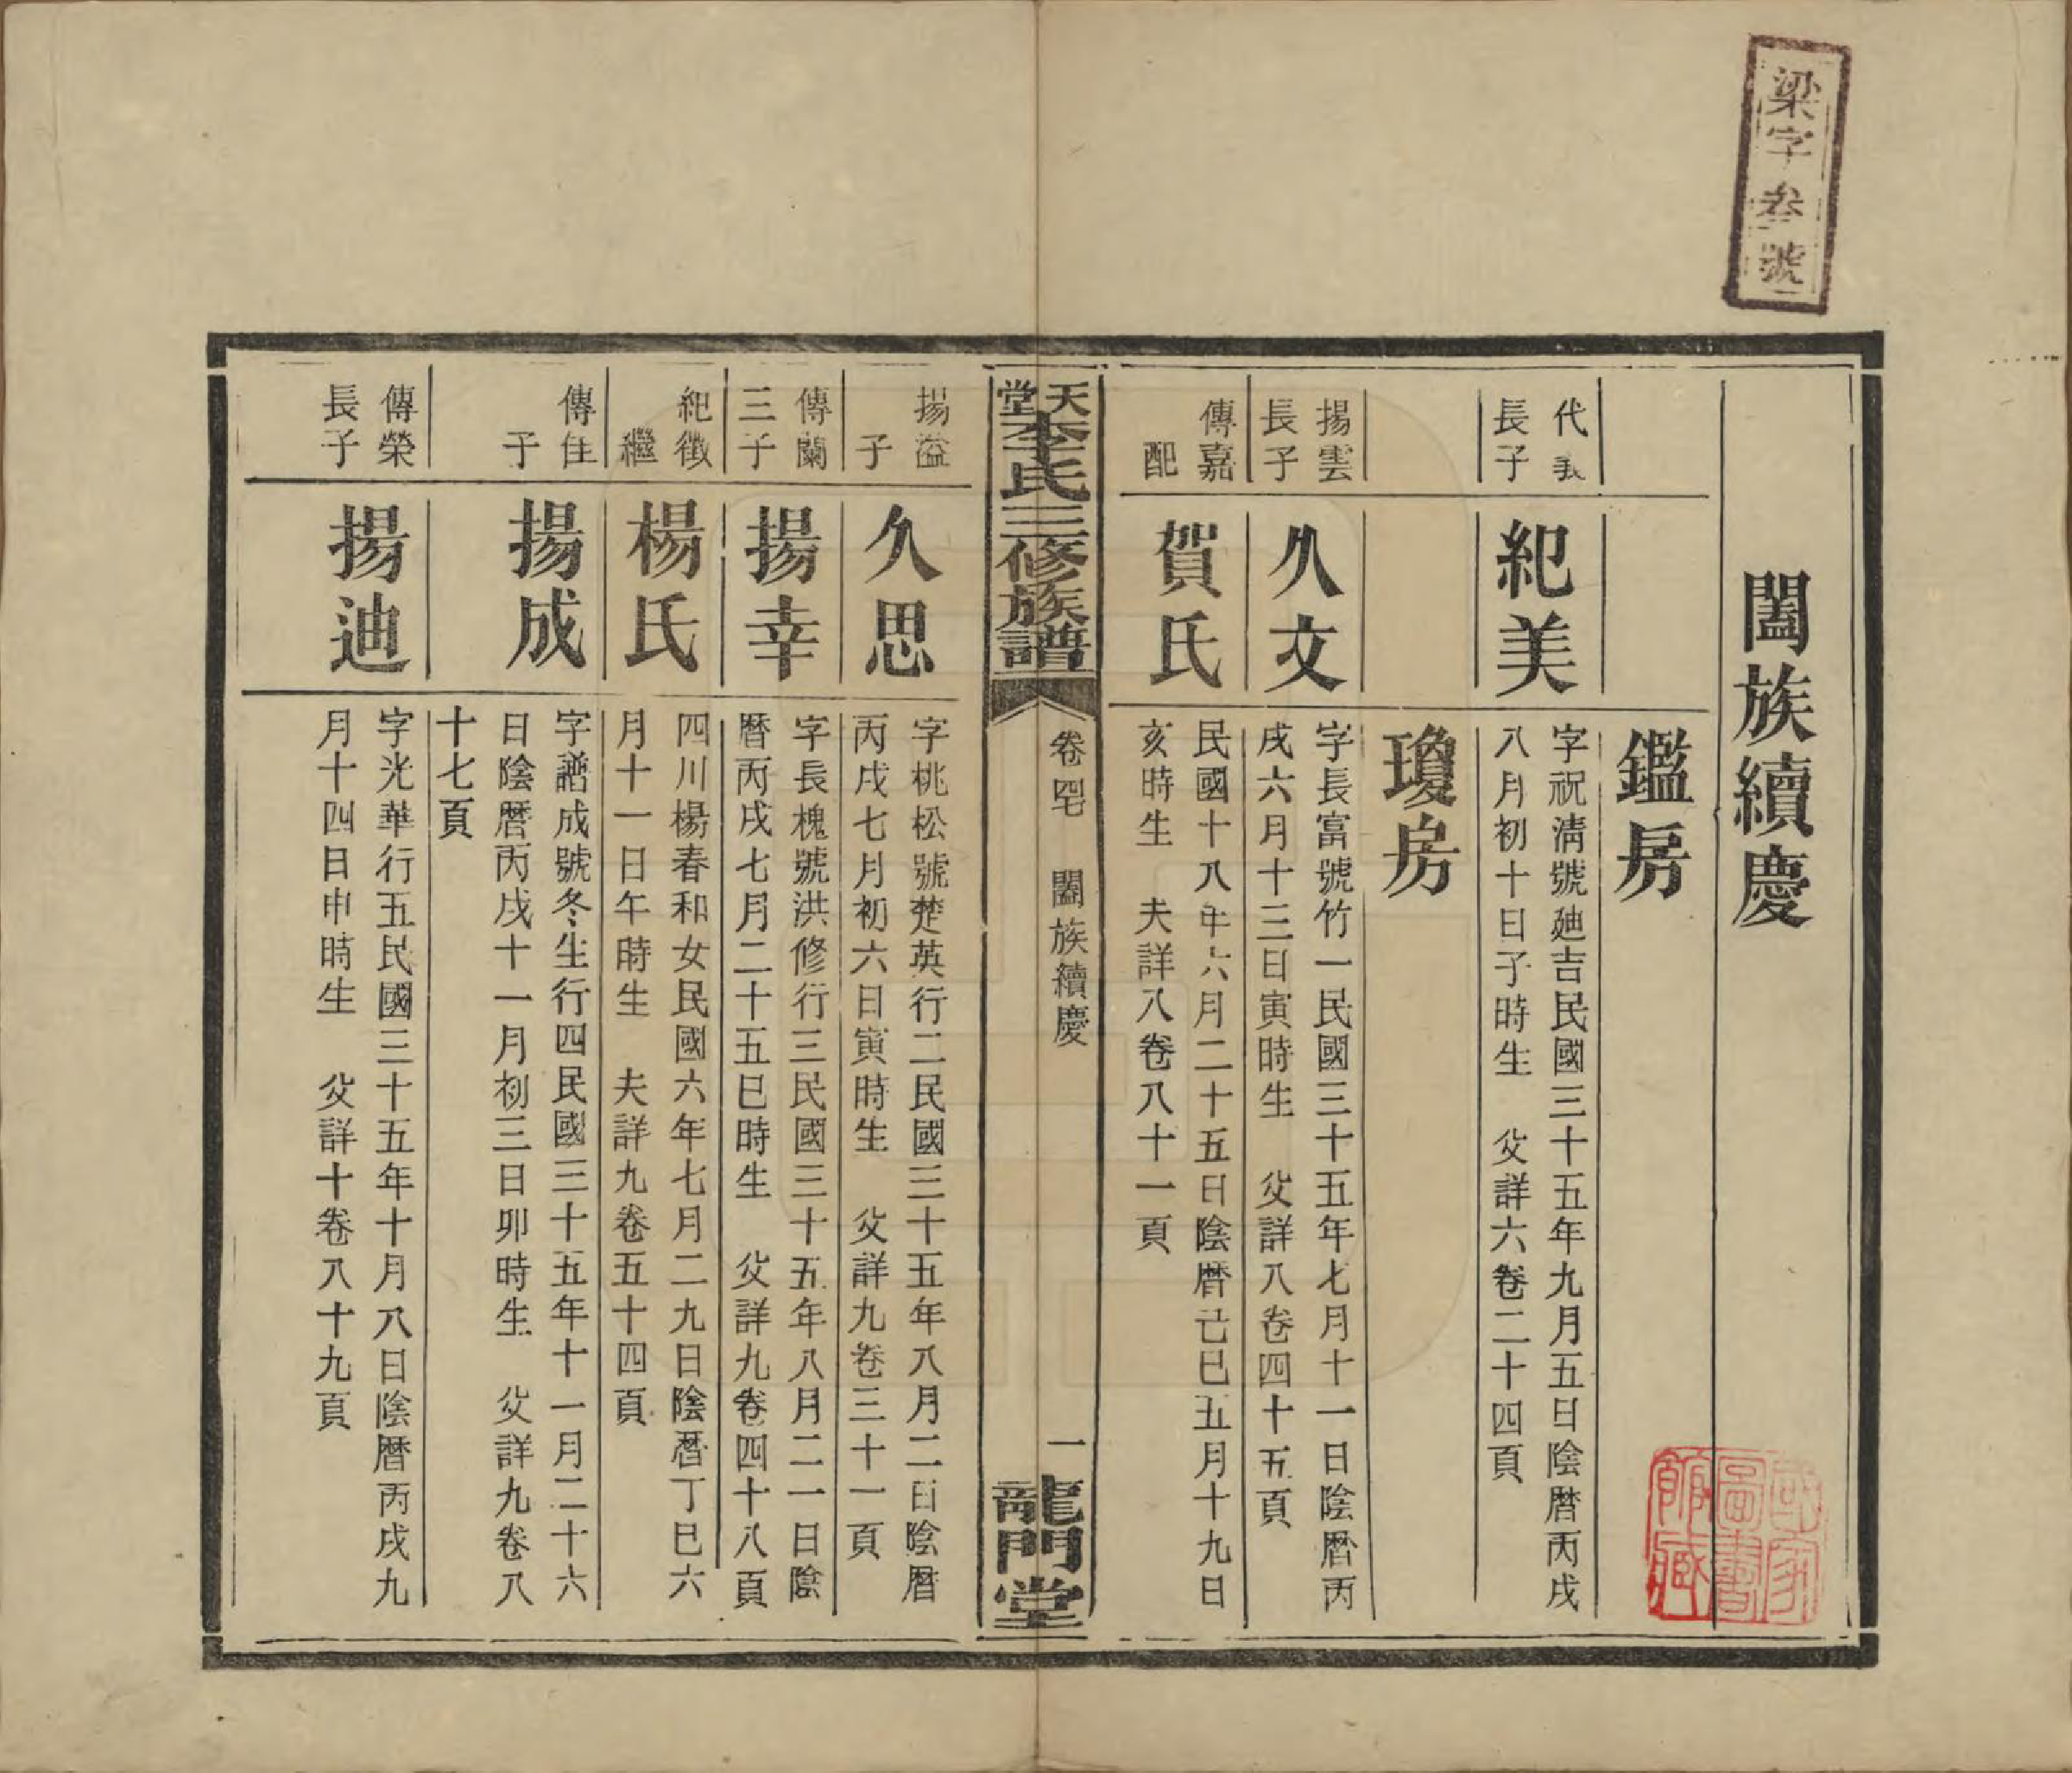 梁字叁號
闔族續慶
鑑房
代義
長子
紀美
字祝淸號廸吉民國三十五年九月五日陰曆丙戌
八月初十日子時生　父詳六卷二十四頁
瓊房
揚雲
長子
久文
字長富號竹一民國三十五年七月十一日陰曆丙
戌六月十三日寅時生　父詳八卷四十五頁
傳嘉
配
賀氏
民國十八年六月二十五日陰曆己巳五月十九日
亥時生　夫詳八卷八十一頁
天堂李氏三修族譜
卷四
闔族續慶
一
龍門堂
揚溢
子
久思
字桃松號楚英行二民國三十五年八月二日陰曆
丙戌七月初六日寅時生　父詳九卷三十一頁
傳蘭
三子
揚幸
字長槐號洪修行三民國三十五年八月二一日陰
曆丙戌七月二十五巳時生　父詳九卷四十八頁
紀徵
繼
楊氏
四川楊春和女民國六年七月二九日陰曆丁巳六
月十一日午時生　夫詳九卷五十四頁
傳佳
子
揚成
字譜成號冬生行四民國三十五年十一月二十六
日陰曆丙戌十一月初三日卯時生　父詳九卷八
十七頁
傳榮
長子
揚迪
字光華行五民國三十五年十月八日陰曆丙戌九
月十四日申時生　父詳十卷八十九頁
國家
圖書
館藏